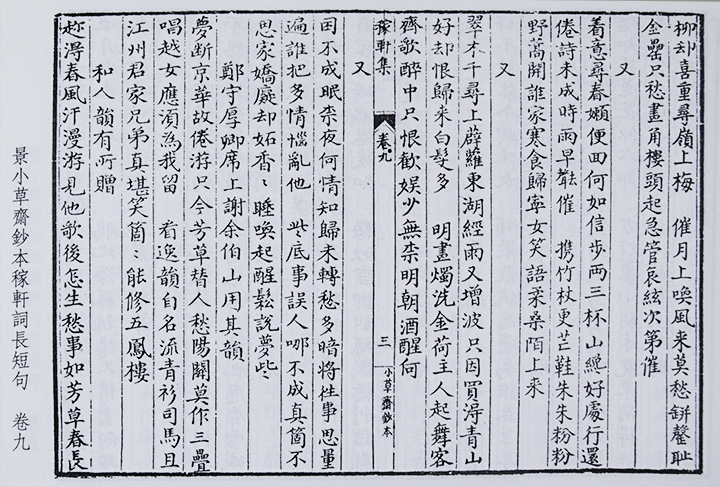 柳却喜重尋嶺上梅　催月上喚風来莫愁缾罄耻
金罍只愁畫角樓頭起急管哀絃次第催
又
着意尋春嬾便回何如信步两三杯山纔好處行還
倦詩未成時雨早催　携竹杖更芒鞋朱朱粉粉
野蒿開誰家寒食歸寧女笑語柔桑陌上来
又
翠木千尋上薜蘿東湖經雨又增波只因買淂青山
好却恨歸来白髪多　明畫燭洗金荷主人起舞客
齊歌醉中只恨歡娱少無柰明朝酒醒何
稼軒集　卷九　三　小草齋鈔本
又
困不成眠柰夜何情知歸未轉愁多暗将徃事思量
遍誰把多情惱亂他　些底事誤人哪不成真箇不
思家嬌癡却妬香〻睡喚起醒鬆說夢些
鄭守厚卿席上謝余伯山用其韻
夢斷京華故倦游只今芳草替人愁陽關莫作三疊
唱越女應湏為我留　看逸韻自名流青衫司馬且
江州君家兄弟真堪笑箇〻能修五鳳樓
和人韻有所贈
趂淂春風汗漫游見他歌後怎生愁事如芳草春長
景小草齋鈔本稼軒詞長短句　卷九